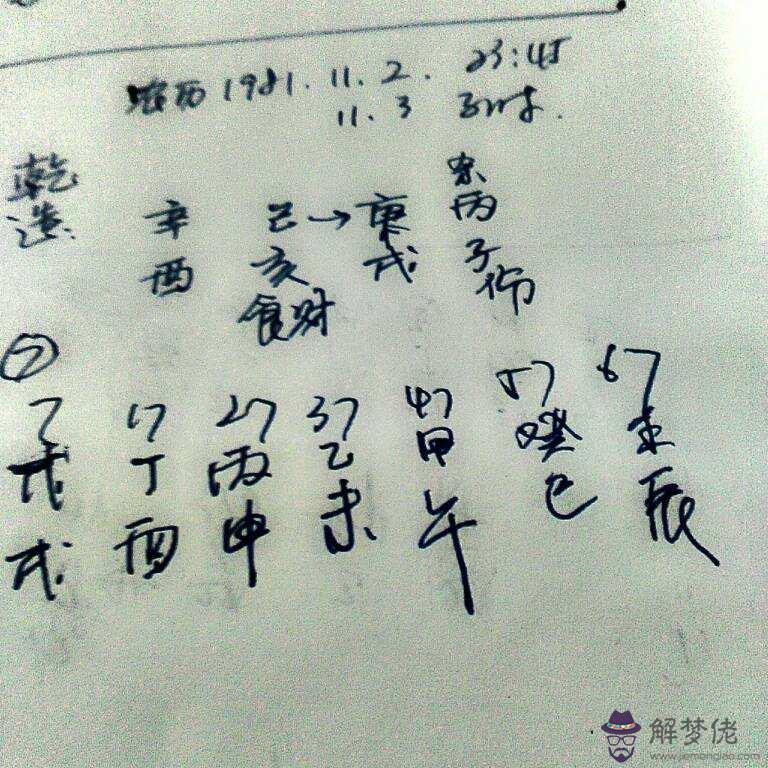 农历 1981. 11. 2. 23:45
11. 3 子时.
乾造 辛 己→庚 丙
酉 亥 戌 子
食财 伤
⑦
7 17 27 37 47 57 67
戊 丁 丙 乙 甲 癸
戌 酉 申 未 午 巳 辰
解梦佬
www.jiemenglao.com